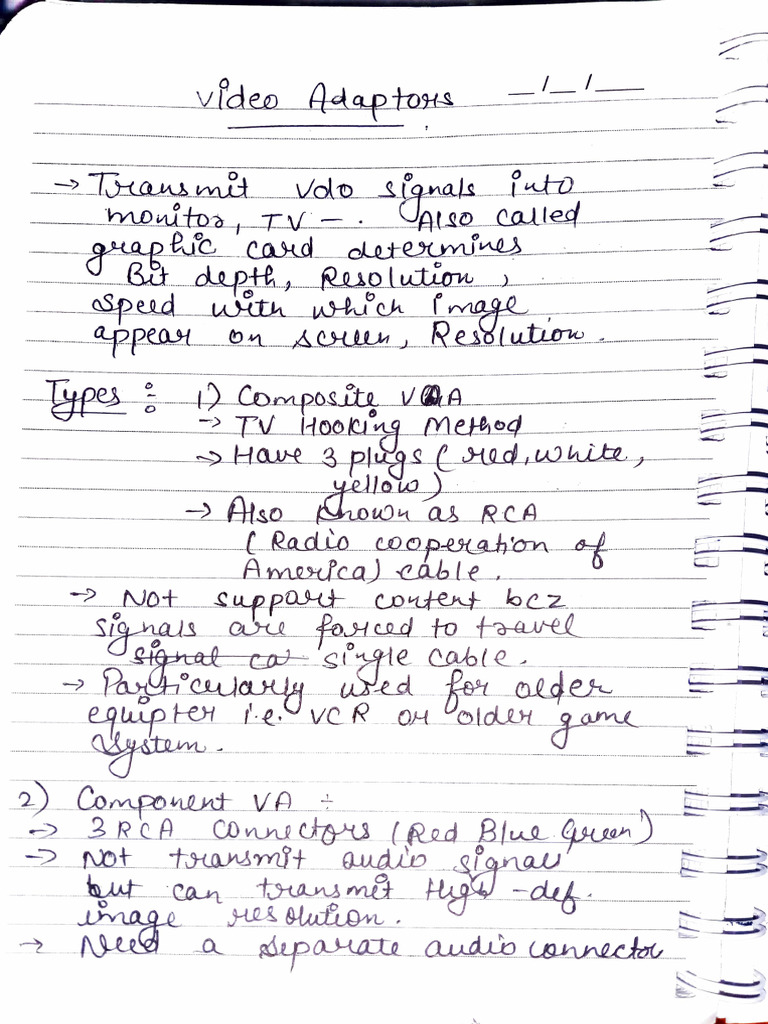 Video Adaptors __/__/__
→ Transmit vdo signals into
monitor, TV - . Also called
graphic card determines
Bit depth, Resolution,
speed with which image
appear on screen, Resolution.
Types : 1) Composite VA
→ TV Hooking Method
→ Have 3 plugs (red, white,
yellow)
→ Also known as RCA
(Radio cooperation of
America) cable.
→ Not support content bcz
signals are forced to travel
signal ca single cable.
→ Particularly used for older
equipter i.e. VCR or older game
system.
2) Component VA ÷
→ 3 RCA connectors (Red Blue Green)
→ Not transmit audio signals
but can transmit High -def.
image resolution.
→ Need a separate audio connector